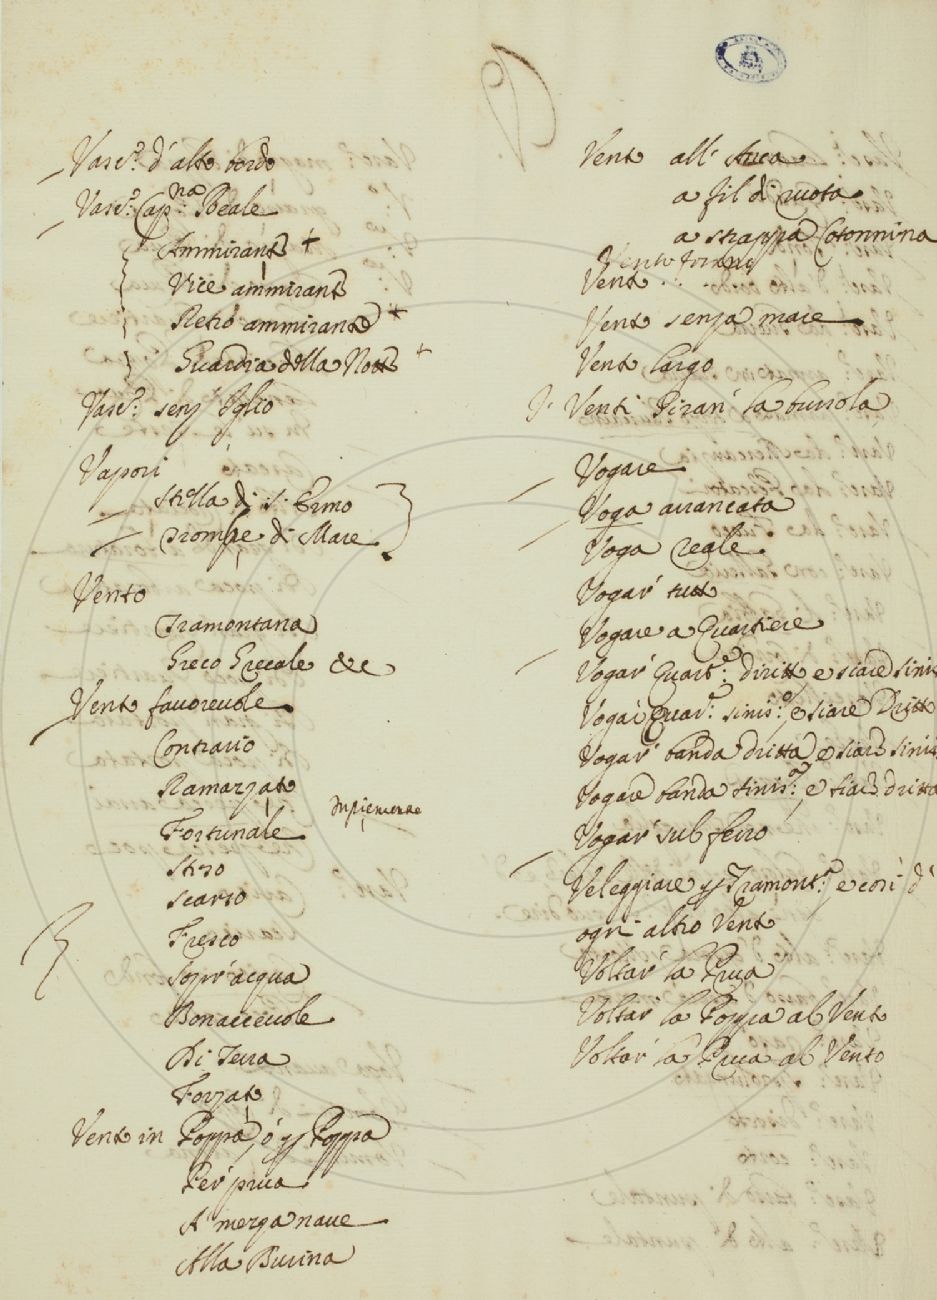 Vasc.o d'alto bordo
Vasc.o Cap.na Reale
Ammirante +
Vice ammirante
Retro ammirante +
Guardia della Notte +
Vasc.o senz
Vapori
Stella di S. Ermo
Trombe di Mare
Vento
Tramontana
Greco Grecale &c
Vento favorevole
Contrario
Ramazzato
Fortunale
Stiro
scarso
Fresco
Sopr'acqua
Bonaccevole
Di Terra
Forzato
Vento in Poppa, ó p Poppa
Per prua
A' mezza nave
Alla Burina
Vento all'
a fil di ruota
a strappa Cotonnina
Vento
Vento
Vento senza mare
Vento largo
Venti Tiran' la bussola
Vogare
Voga arrancata
Voga reale
Vogar' tutto
Vogare a Quartiere
Vogar' Quart.e diritto, e sciare sinis
Vogar' Quar.e sinis.o, e sciare Dritto
Vogar' banda dritta, e sciare sinis
Vogare banda sinis.a, e sciare dritta
Vogar' sul ferro
Veleggiare p Tramont.a, e così d'
ogni altro Vento
Voltar' la Prua
Voltar' la Poppa al Vento
Voltar' la Prua al Vento